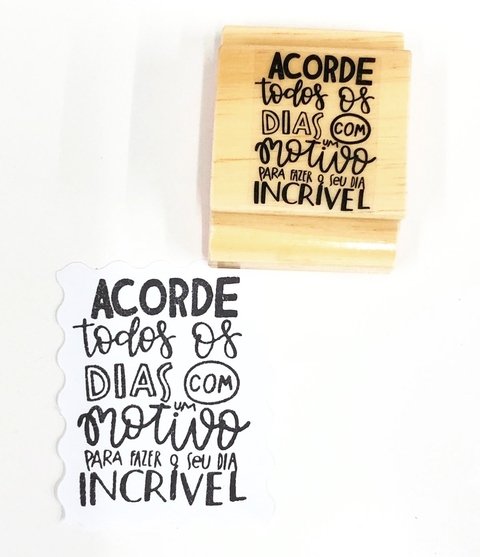 ACORDE
todos os
DIAS COM
um
motivo
PARA FAZER o SeU DIA
INCRÍVEL
ACORDE
todos os
DIAS COM
um
motivo
PARA FAZER o SeU DIA
INCRÍVEL